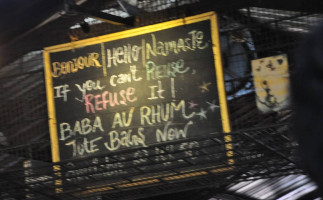 Bonjour | Hello | Namaste
If you can't Reuse,
REFUSE It!
BABA AU RHUM
Jute Bags Now